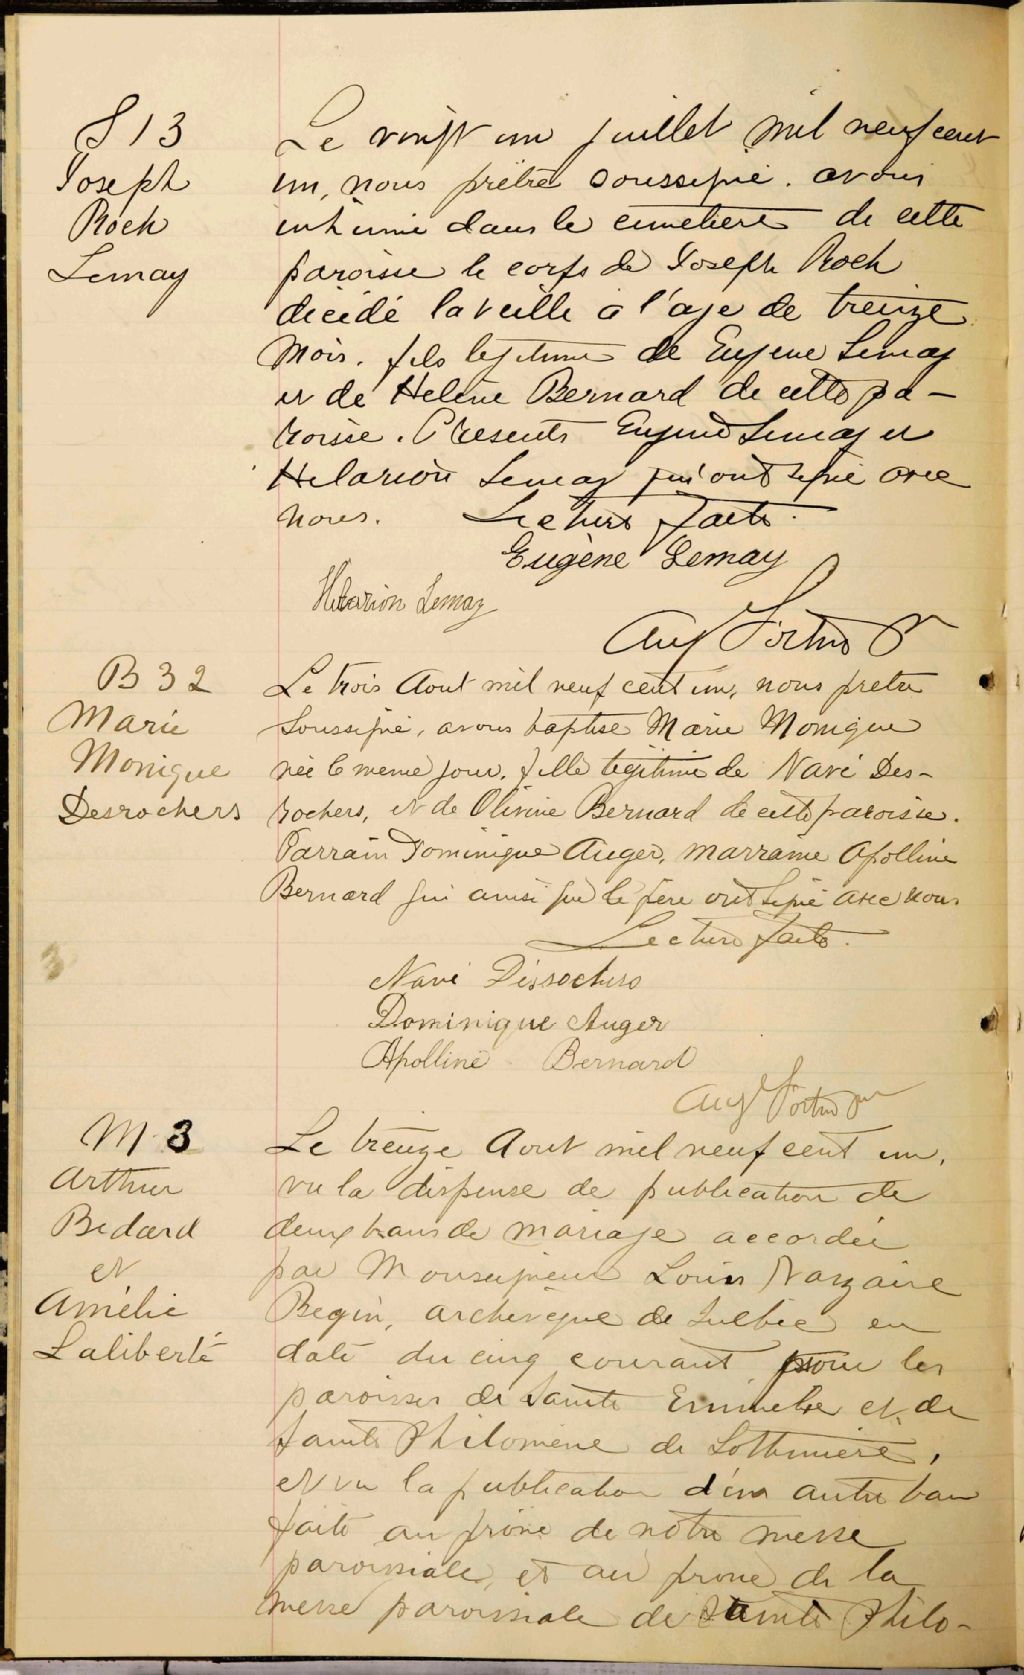 S 13
Joseph
Roch
Lemay
Le vingt un juillet mil neuf cent
un, nous prêtre soussigné. avons
inhumé dans le cimetière de cette
paroisse le corps de Joseph Roch
décédé la veille à l'age de treize
mois. fils legitime de Eugene Lemay
et de Helène Bernard de cette pa-
roisse. Presents Eugene Lemay et
Helarion Lemay qui ont signé avec
nous. Lecture faite.
Eugène Lemay
Hilarion Lemay
Aug
B 32
Marie
Monique
Desrochers
Le trois Aout mil neuf cent un, nous pretre
soussigné, avons baptisé Marie Monique
née le meme jour. fille légitime de Navé Des-
rochers, et de Olivine Bernard de cette paroisse.
Parrain Dominique Auger, marraine Apolline
Bernard qui ainsi que le père ont signé avec nous
Lecture faite.
Navé Desrochers
Dominique Auger
Apolline Bernard
Aug
3
M 3
Arthur
Bedard
et
Amélie
Laliberté
Le treize Aout mil neuf cent un,
vu la dispense de publication de
deux bans de mariage accordée
par Monseigneur Louis Nazaire
Begin, archevêque de Québec en
date du cinq courant pour les
paroisses de Sainte Emmelie et de
Sainte Philomène de Lotbinière,
et vu la publication d'un autre ban
faite au prône de notre messe
paroissiale, et au prone de la
messe paroissiale de Sainte Philo-